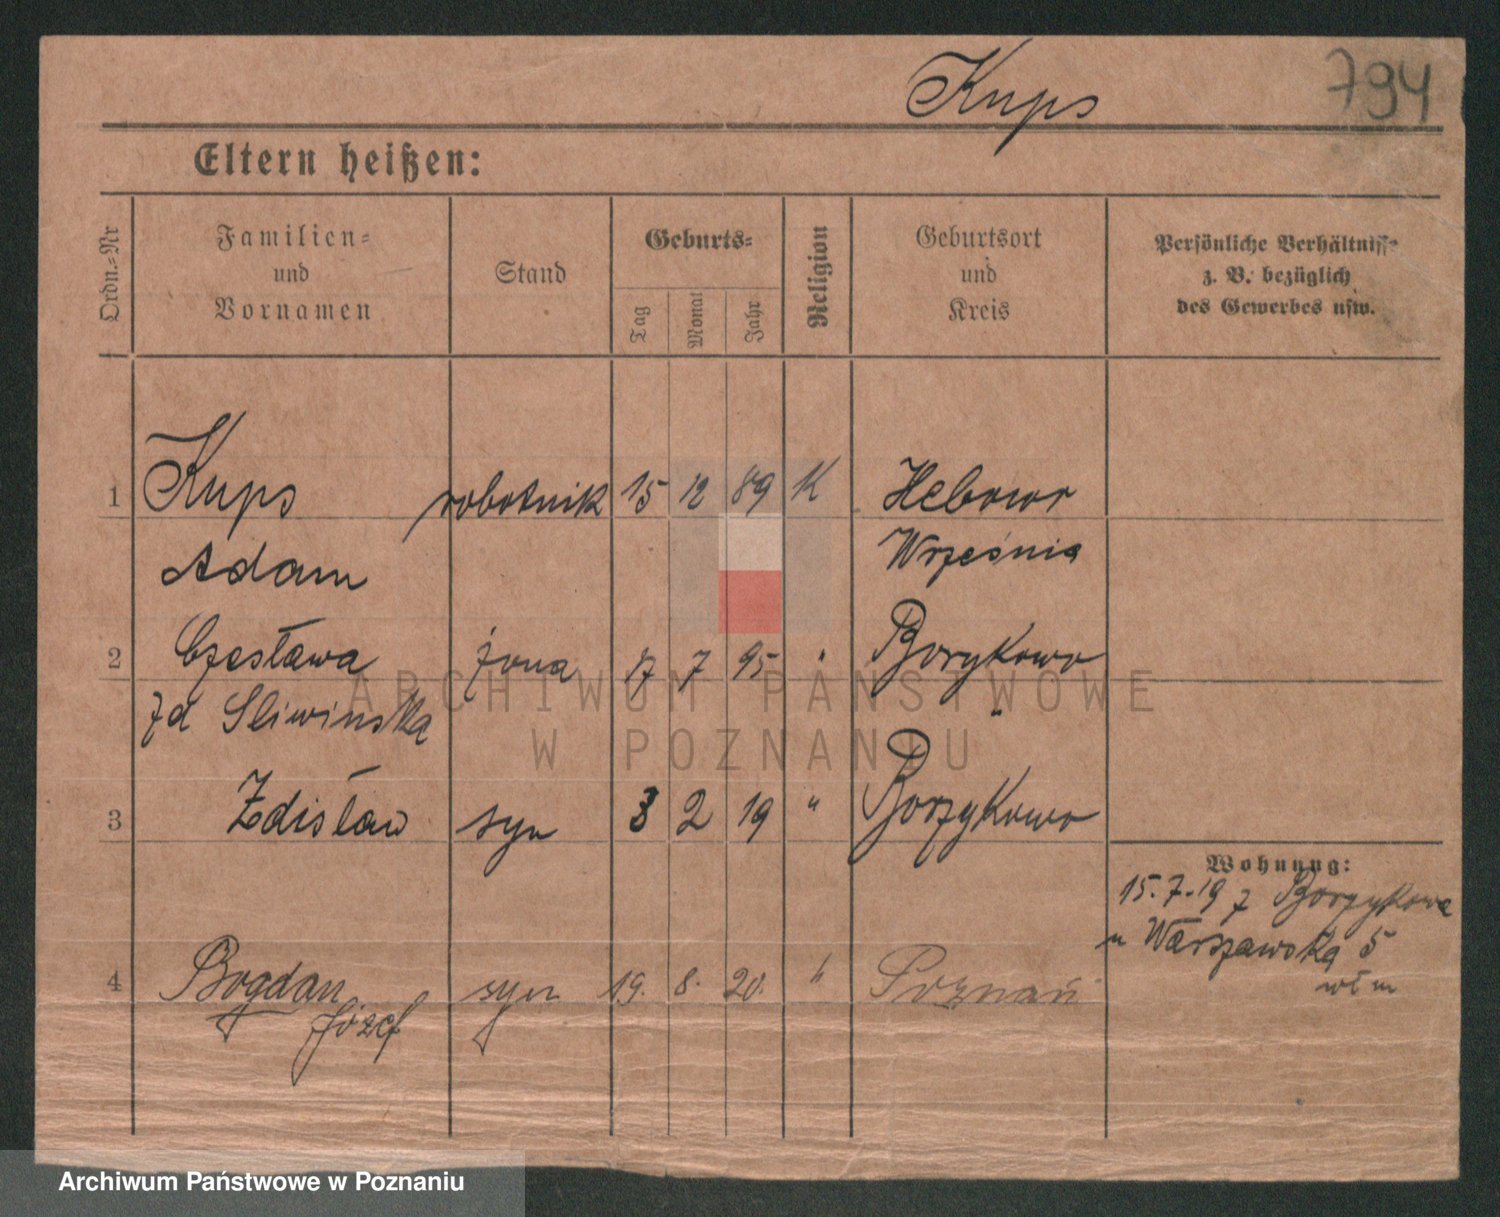 Kups 794
Eltern heißen:
Ordn.-Nr
Familien-
und
Vornamen
Stand
Geburts-
Tag
Monat
Jahr
Religion
Geburtsort
und
Kreis
Persönliche Verhältnisse
z. B. bezüglich
des Gewerbes usw.
1 Kups robotnik 15 12 89 K
Adam Września
2 Czesława żona 7 95 " Borykowo
zd Sliwinska "
3 Zdisław syn 3 2 19 " Borzykowo
Wohnung:
15.7.19 z Borzykowa
u Warszawska 5
4 Bogdan syn 19. 8. 20. " Poznań
Józef
ARCHIWUM PAŃSTWOWE
W POZNANIU
Archiwum Państwowe w Poznaniu